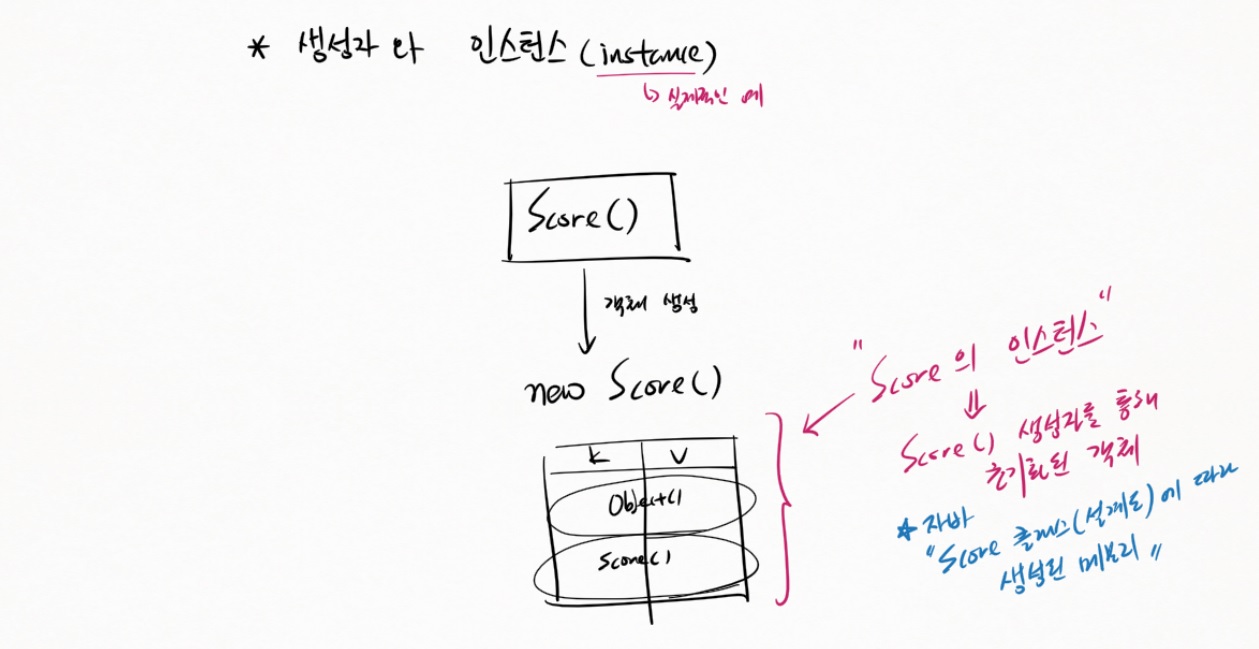 * 생성자 와 인스턴스 (instance)
↳ 실제적인 예
Score()
객체 생성
new Score()
K V
Object()
Score()
"Score의 인스턴스"
⇓
Score() 생성자를 통해
초기화된 객체
* 자바
"Score 클래스(설계도)에 따라
생성된 메모리"